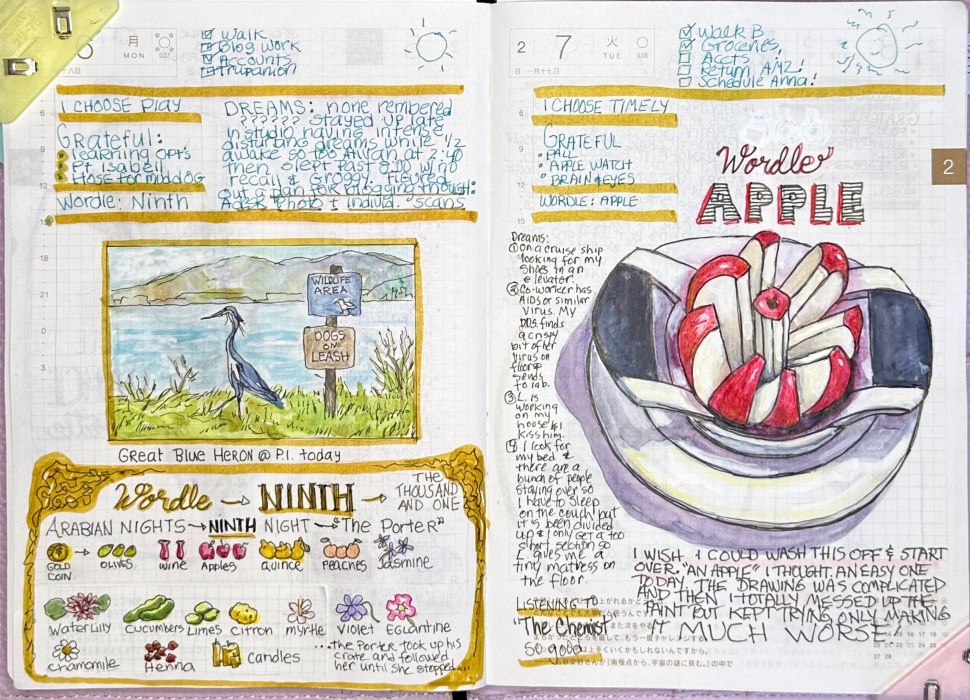 6 月 MON
十六日
☑ Walk
Blog Work
Accounts
Trupanion
I CHOOSE PLAY
Grateful:
• learning opts
• Pt. Isabell
• Hose for mud dog
Wordle: Ninth
DREAMS: none rembered
?????? Stayed up late
in studio having intense
disturbing dreams while 1/2
awake so too Ativan at 2:40
then slept fast 8am w/no
recall & groggy. Figured
out a plan for blogging though:
Adsk Photo + individ. scans
6
9
12
15
18
21
0
3
WILDLIFE
AREA
DOGS
ON
LEASH
Great Blue HERON @ P.I. today
Wordle → NINTH → THE
THOUSAND
AND ONE
ARABIAN NIGHTS → NINTH NIGHT → "The Porter"
GOLD
COIN
OLIVES
WINE
Apples
quince
peaches
Jasmine
Waterlily
Cucumbers
Limes
Citron
myrtle
Violet
Eglantine
Chamomile
Henna
Candles
...the porter took up his
crate and followed
her until she stepped...
2 7 火 TUE
日 一月十七日
☑ Walk B
☑ Groceries
☐ Accts
☐ Return AMZ!
☐ Schedule Anna!
I CHOOSE TIMELY
GRATEFUL
• PALL
• APPLE WATCH
• BRAIN & EYES
WORDLE: APPLE
6
9
12
15
2
Wordle
APPLE
Dreams:
① On a cruise ship
looking for my
shoes in an
elevator.
② Co-worker has
AIDS or similar
virus. My
DDS. finds
a crispy
bit of her
virus on
floor &
sends
to lab.
③ L. is
working
on my
house & I
kiss him.
④ I look for
my bed &
there are a
bunch of people
staying over so
I have to sleep
on the couch but
it's been divided
up & I only get a too
short section so
L. gives me a
tiny matress on
the floor.
LISTENING TO
"The Chemist"
so good
I WISH I COULD WASH THIS OFF & START
OVER. "AN APPLE" I THOUGHT: AN EASY ONE
TODAY. THE DRAWING WAS COMPLICATED
AND THEN I TOTALLY MESSED UP THE
PAINT BUT KEPT TRYING, ONLY MAKING
IT MUCH WORSE.